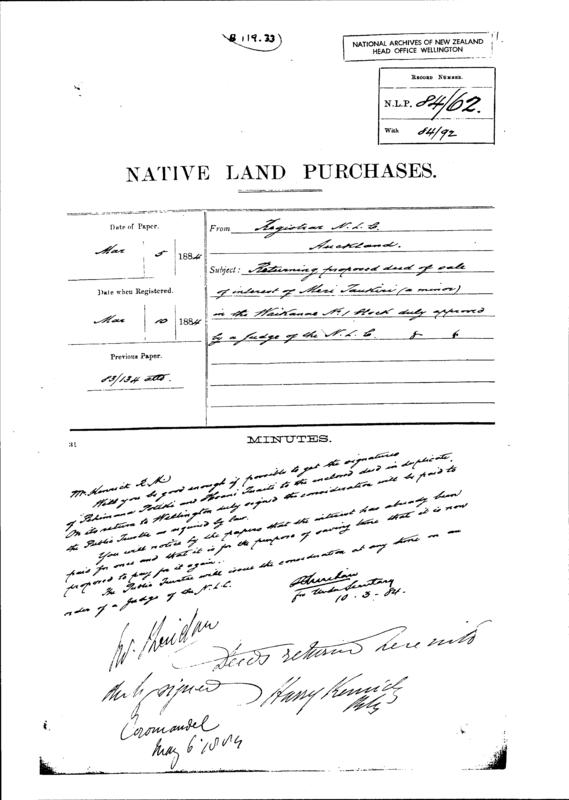 B 119.33
NATIONAL ARCHIVES OF NEW ZEALAND
HEAD OFFICE WELLINGTON
RECORD NUMBER.
N.L.P. 84/62.
With 84/92
NATIVE LAND PURCHASES.
Date of Paper.
Mar 5 1884
Date when Registered.
Mar 10 1884
Previous Paper.
83/134
From Registrar N.L.C.
Auckland.
Subject: Returning proposed deed of sale
of interest of Meri (a minor)
in the No 1 Block duly approved
by a Judge of the N.L.C.
31
MINUTES.
Mr. Kenrick R.M.
Will you be good enough if possible to get the signatures
of and to the enclosed deed in duplicate.
On its return to Wellington duly signed the consideration will be paid to
the Public Trustee as required by law.
You will notice by the papers that the interest has already been
paid for once and that it is for the purpose of saving time that it is now
proposed to pay for it again.
The Public Trustee will issue the consideration at any time on an
order of a Judge of the N.L.C.
for Under Secretary
10.3.84.
Mr. Sheridan
Deeds returned herewith
duly signed
Harry Kenrick
Coromandel
May 6 1884